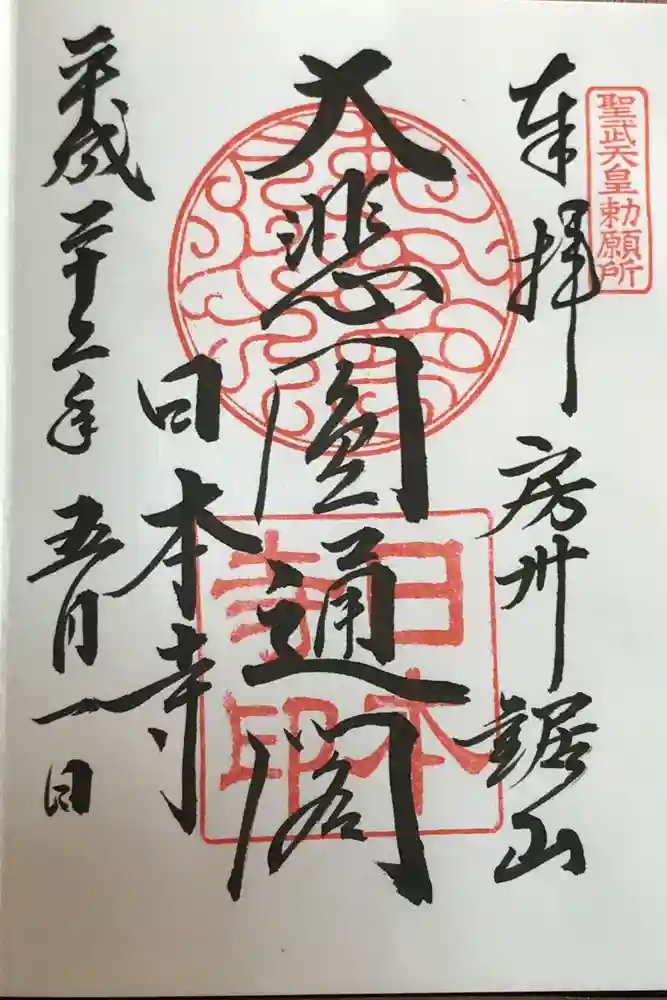 聖武天皇勅願所
奉拝 房州 鋸山
大悲圓通閣
日本寺印
日本寺
平成二十二年 五月一日